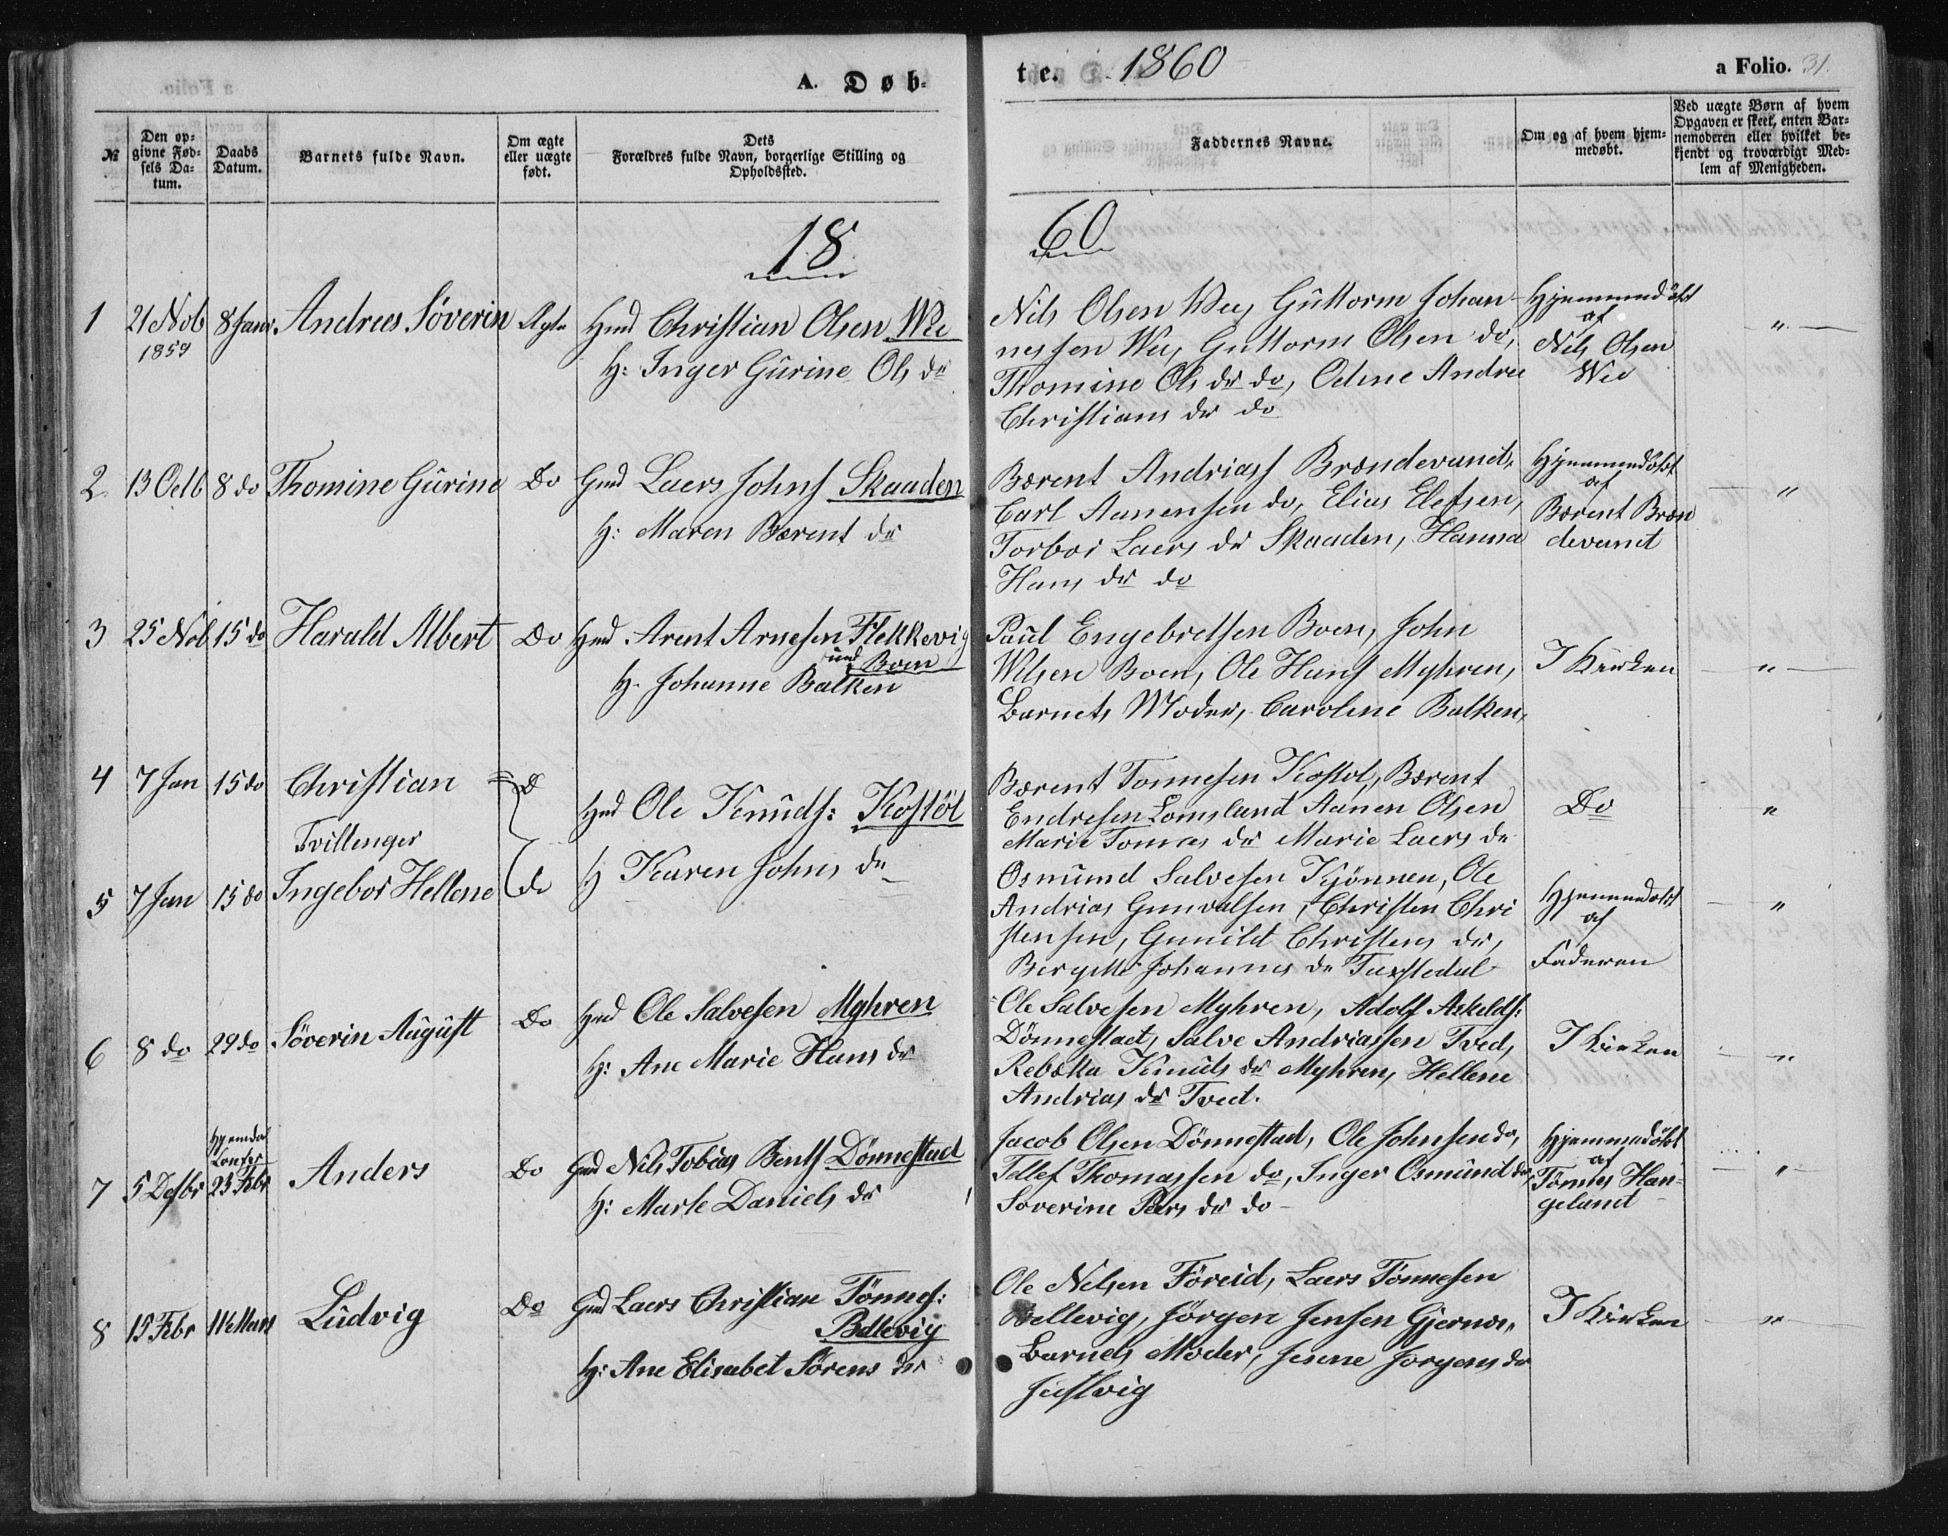 A. Døb-
te. 1860
a Folio. 31.
№
Den op-
givne Fød-
sels Da-
tum.
Daabs
Datum.
Barnets fulde Navn.
Om ægte
eller uægte
født.
Dets
Forældres fulde Navn, borgerlige Stilling og
Opholdssted.
Faddernes Navne.
Om og af hvem hjem-
medøbt.
Ved uægte Børn af hvem
Opgaven er skeet, enten Bar-
nemoderen eller hvilket be-
kjendt og troværdigt Med-
lem af Menigheden.
18 60
1 21 Nob 8 Janr Andreas Söverin Ægte Hmd Christian Olsen Wee
1859
H: Inger Gurine Ols dr
Nils Olsen Wee, Guttorm Johan-
nessen Wee, Guttorm Olsen do,
Thomine Ols dr do, Odine Andrea
Christians dr do
Hjemmedöbt
af
Nils Olsen
Wee
"
2 13 Octb 8 do Thomine Gurine Do Gmd Laers Johns Skaaden
H: Maren Bærent dr
Bærent Andriass Brændevand,
Carl Aanensen do, Elias Elefsen,
Torbor Laers dr Skaaden, Hanna
Hans dr do
Hjemmedöbt
af
Bærent Bræn
devand
"
3 25 Nob 15 do Harald Albert Do Hmd Arent Arnesen Flekkevig
und Boen
H. Johanne Balken
Paul Engebretsen Boen, John
Wilsen Boen, Ole Hans Myhren,
Barnets Moder, Caroline Balken,
I Kirken
"
4 7 Jan 15 do Christian D
Tvillenger
Hmd Ole Knuds: Kostöl
H Karen Johns dr
Bærent Tonnesen Kostöl, Bærent
Endresen Lomsland Aanen Olsen
Marie Tonnes dr Marie Laers dr
Do
"
5 7 Jan 15 do Ingebor Hellene do
Osmund Salvesen Kjönnen, Ole
Andrias Gunvalsen, Christen Chri
stensen, Gunild Christens dr,
Bergitte Johannes dr
Hjemmedöbt
af
Faderen
"
6 8 do 29 do Söverin August Do Hmd Ole Salvesen Myhren
H: Ane Marie Hans dr
Ole Salvesen Myhren, Adolf Askelds:
Dönnestad, Salve Andriassen Tved,
Rebekka Knuds dr Myhren, Hellene
Andrias dr Tved.
I Kirken
"
7 5 Desbr 25 Febr Anders Do Gmd Nils Tobias Bents Dönnestad
H: Marte Daniels dr
Jacob Olsen Dönnestad, Ole Johnsen do,
Tellef Thomassen do, Inger Osmund dr,
Soverine Peers dr do
Hjemmedöbt
af
Tönnes Han-
geland
"
8 15 Febr 11te Mars Ludvig Do Gmd Laers Christian Tönnes:
Bellevig
H: Ane Elisabet Sörens dr
Ole Nilsen Föreid, Laers Tönnesen
Bellevig, Jörgen Jensen Gjernes,
Barnets Moder, Jörgens dr
Justvig
I Kirken
"